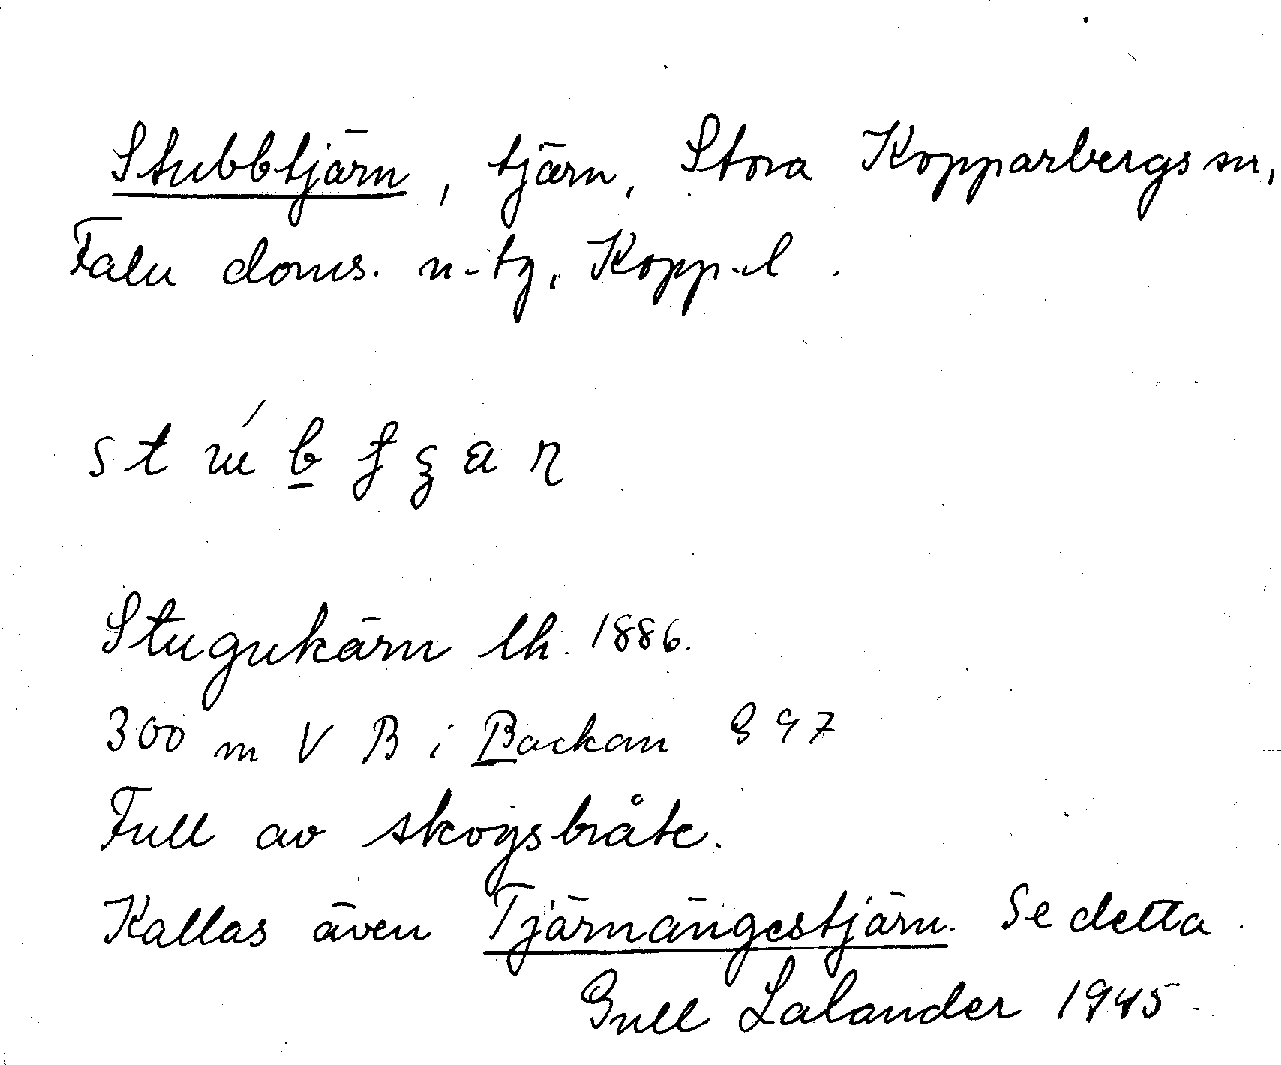 Stubbtjärn, tjärn, Stora Kopparbergs sn,
Falu doms. n-tg, Kopp-l.
Stugukärn lh. 1886.
300 m V B i Backan 997
Full av skogsbråte.
Kallas även Tjärnängestjärn. Se detta.
Gull Lalander 1945.